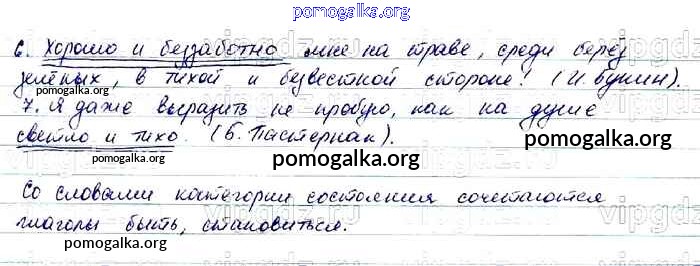 pomogalka.org
6. Хорошо и беззаботно мне на траве, среди берёз
зелёных, в тихой и безвестной стороне! (И. Бунин).
pomogalka.org
7. Я даже выразить не пробую, как на душе
pomogalka.org
светло и тихо. (Б. Пастернак).
pomogalka.org
pomogalka.org
Со словами категории состояния сочетаются
vipgdz
глаголы быть, становиться.
pomogalka.org
pomogalka.org